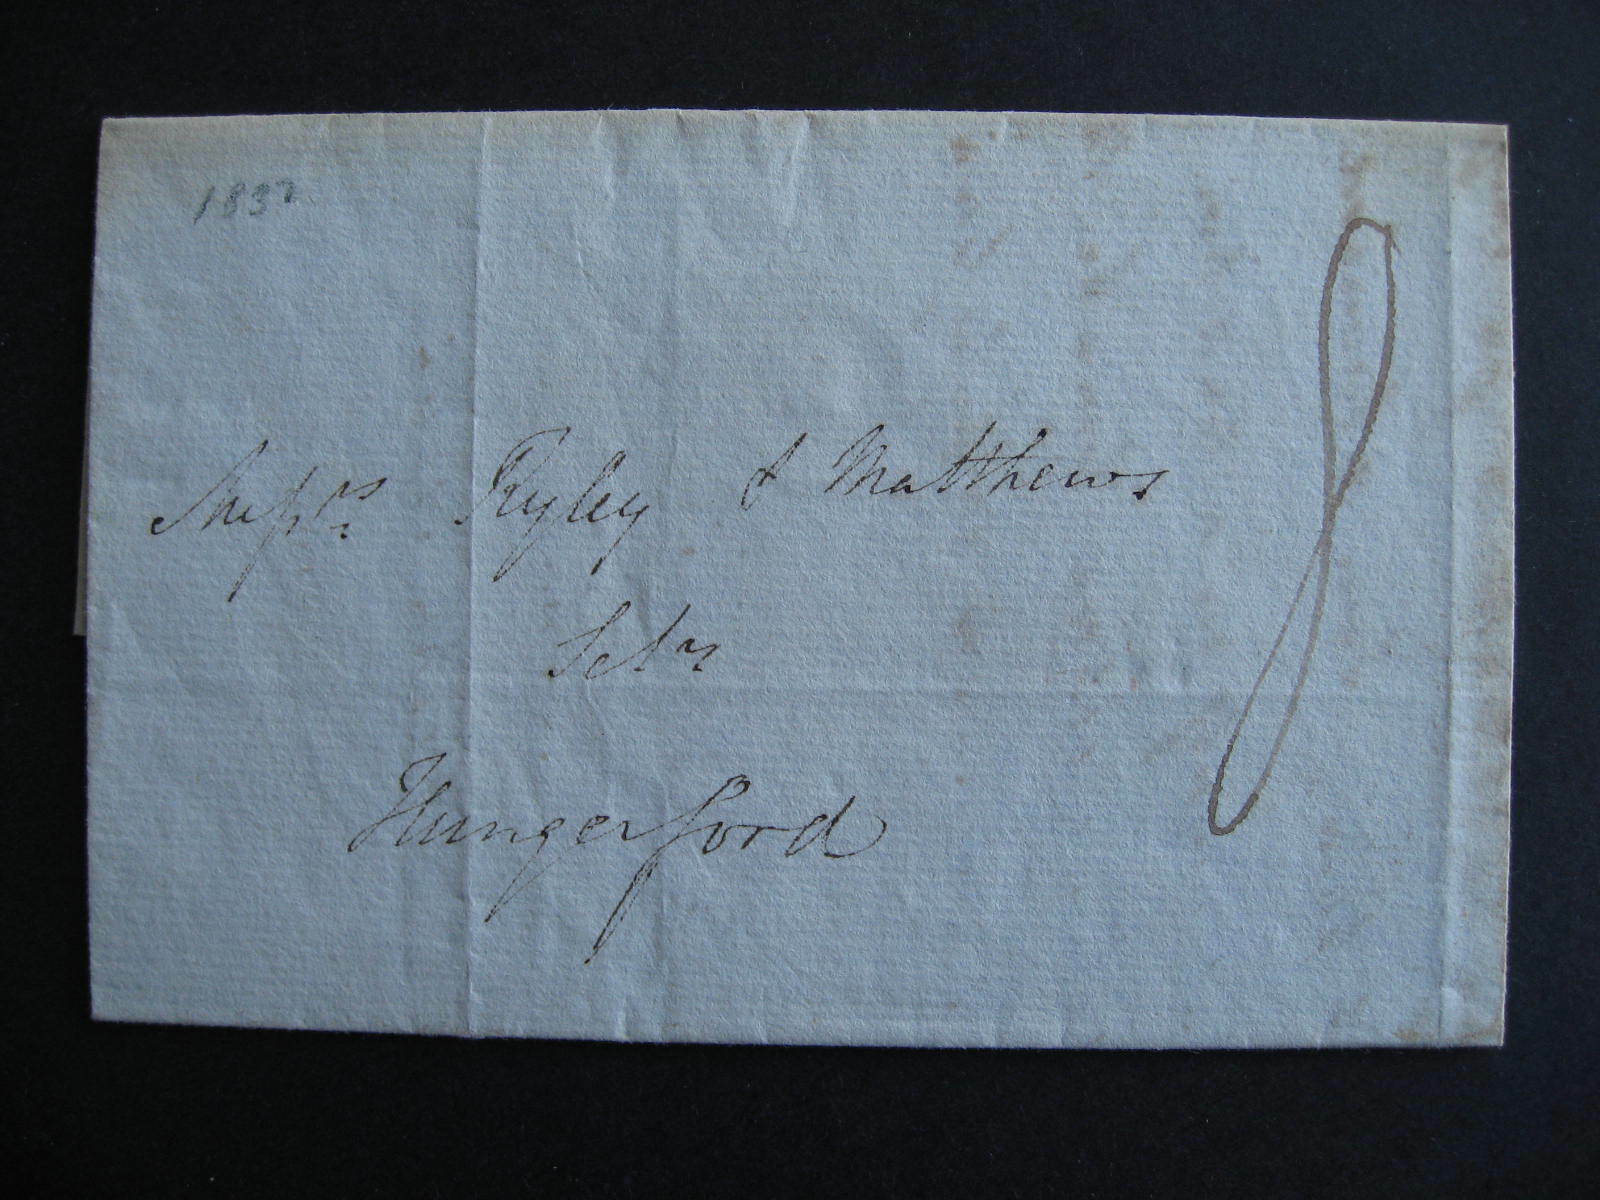 1837
Messrs Ryley & Matthews
Solrs
Hungerford
8